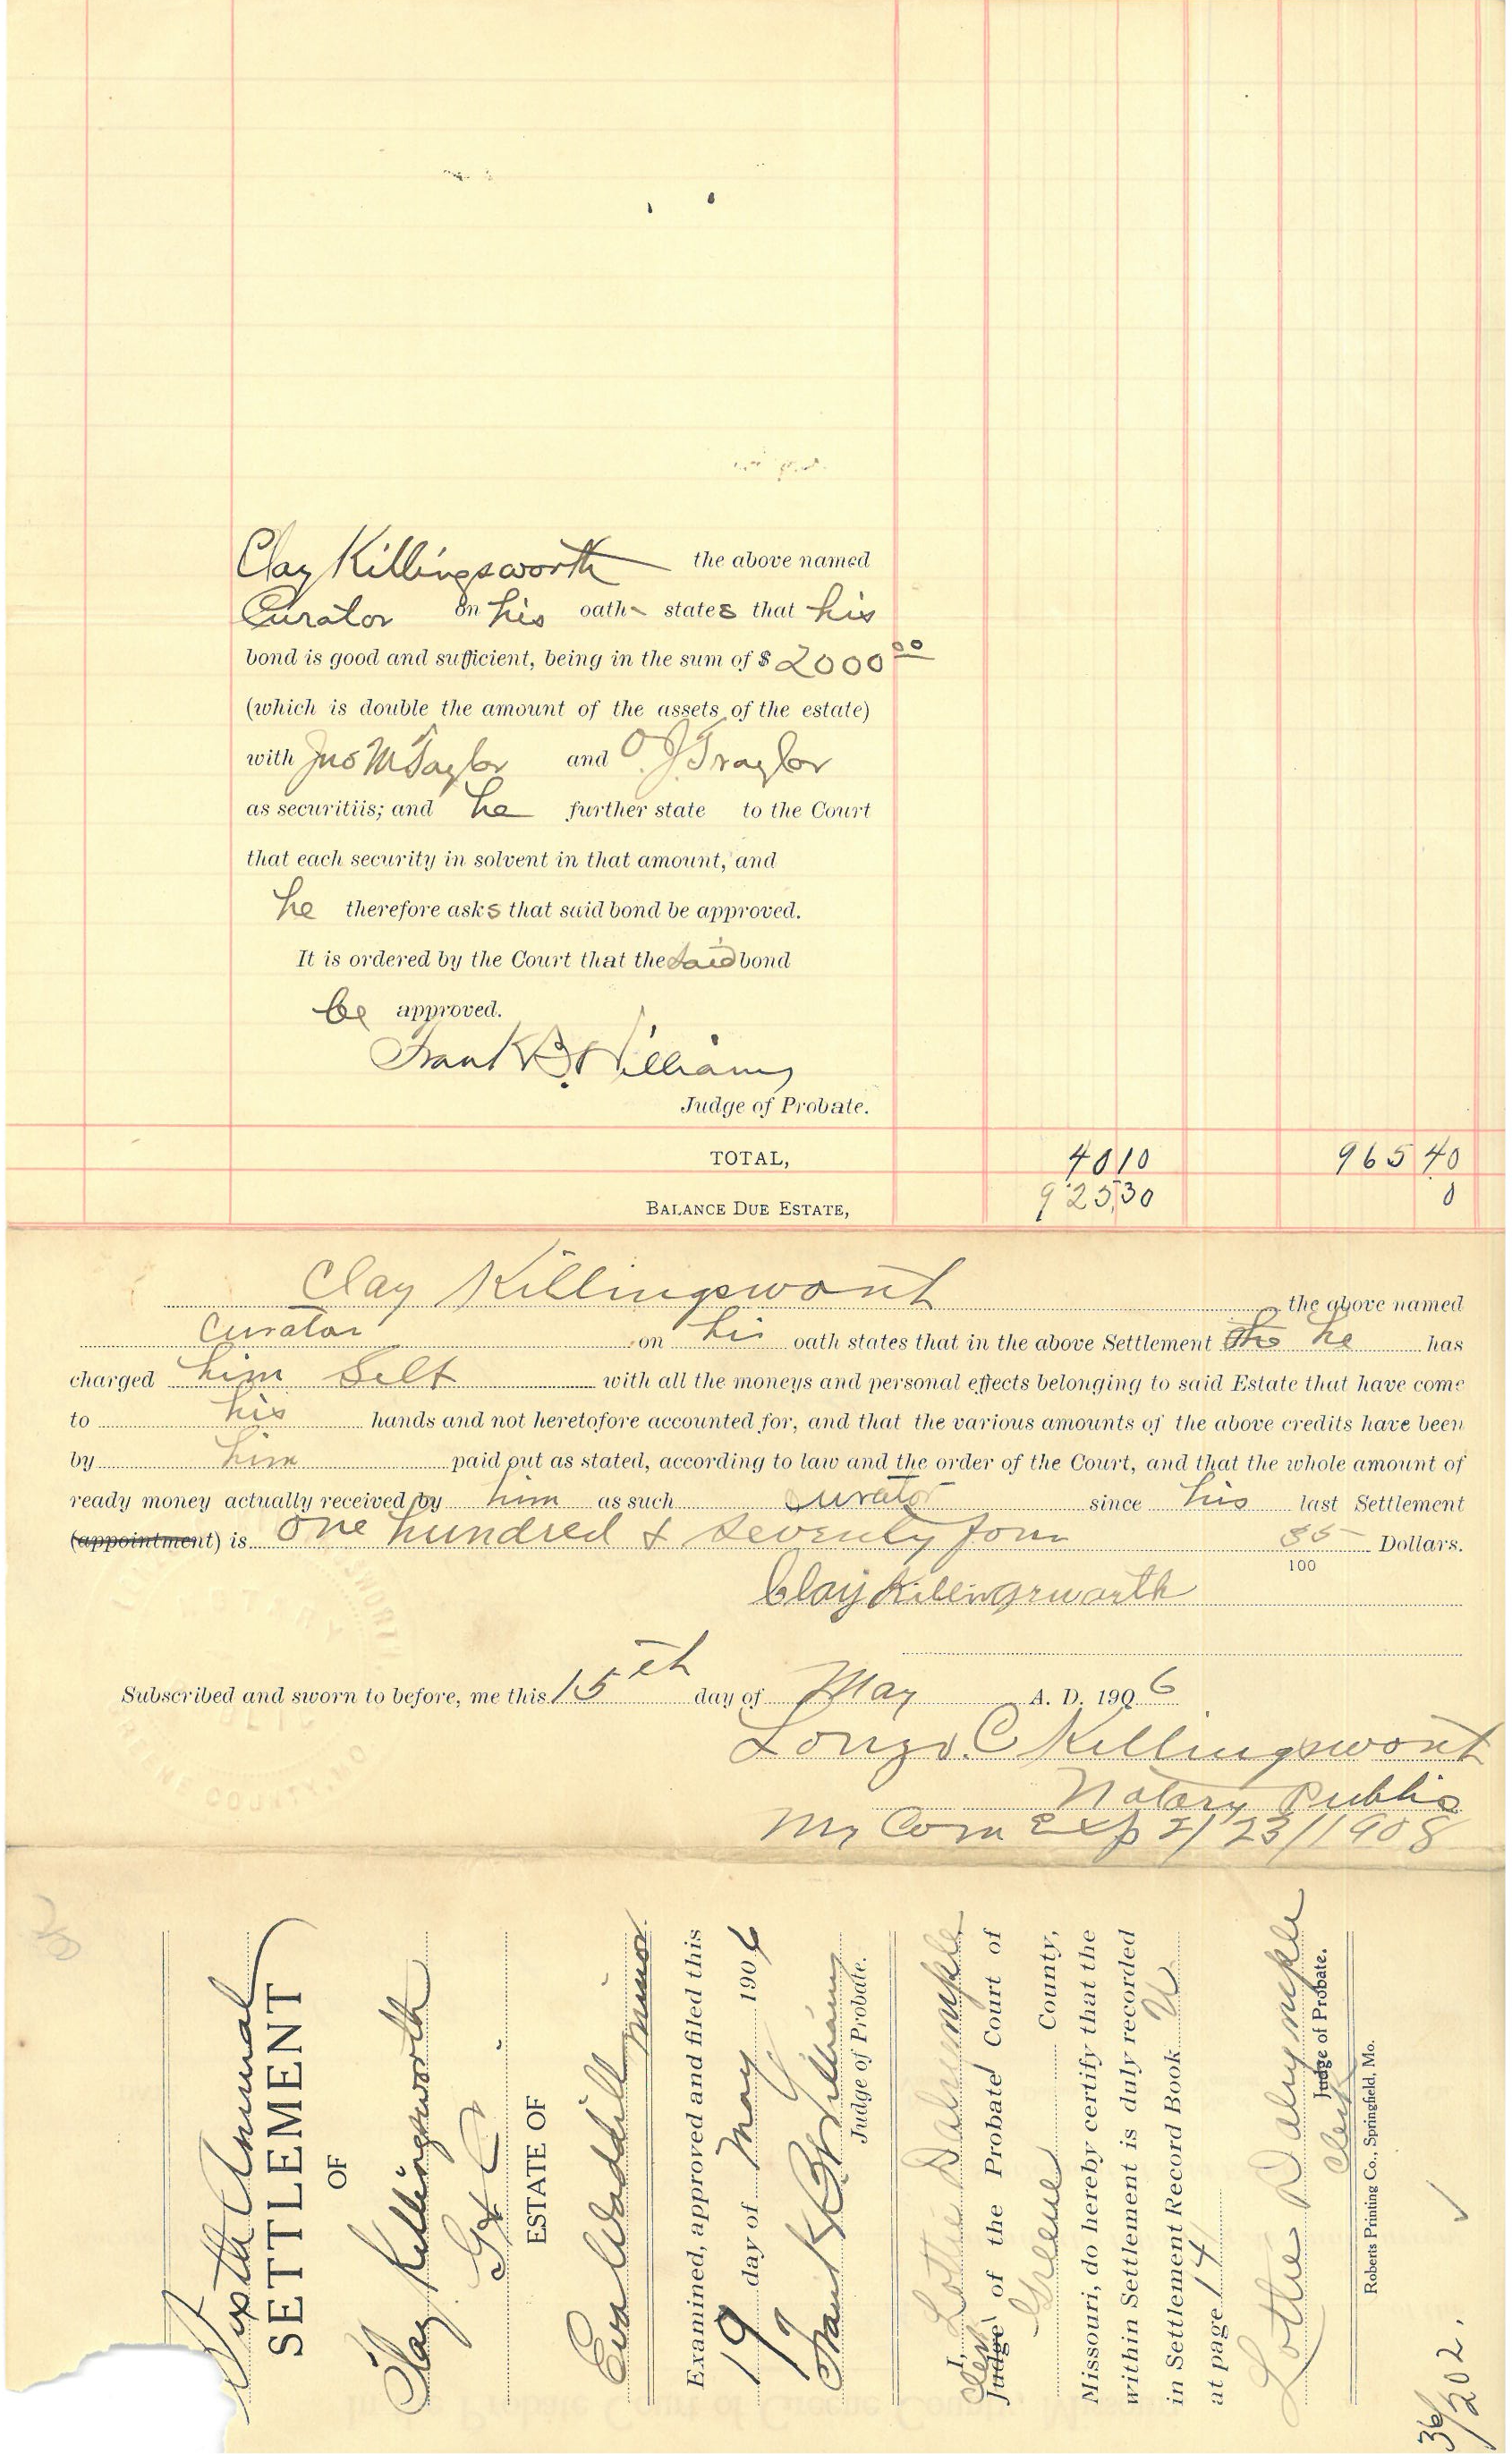 Clay Killingsworth the above named
Curator on his oath states that his
bond is good and sufficient, being in the sum of $ 2000 00
(which is double the amount of the assets of the estate)
with Jno M Taylor and O. J. Traylor
as securitiis; and he further state to the Court
that each security in solvent in that amount, and
he therefore asks that said bond be approved.
It is ordered by the Court that the said bond
be approved.
Frank B. Williams
Judge of Probate.
TOTAL, 40 10 965 40
BALANCE DUE ESTATE, 925.30 0
Clay Killingsworth the above named
Curator on his oath states that in the above Settlement he has
charged him Self with all the moneys and personal effects belonging to said Estate that have come
to his hands and not heretofore accounted for, and that the various amounts of the above credits have been
by him paid out as stated, according to law and the order of the Court, and that the whole amount of
ready money actually received by him as such Curator since his last Settlement
(appointment) is One hundred & Seventy four 35 Dollars.
100
Clay Killingsworth
Subscribed and sworn to before, me this 15th day of May A. D. 1906
Lonzo. C Killingsworth
Notary Public
My Com Exp 2/23/1908
Sixth Annual
SETTLEMENT
OF
Clay Killingsworth
G & C
ESTATE OF
Eva Waddill minor.
Examined, approved and filed this
19 day of May 1906
Frank B. Williams
Judge of Probate.
I, Lottie Dalrymple
Clerk Judge of the Probate Court of
Greene County,
Missouri, do hereby certify that the
within Settlement is duly recorded
in Settlement Record Book U
at page 14
Lottie Dalrymple
Judge of Probate.
Clerk
Roberts Printing Co., Springfield, Mo.
36/202.